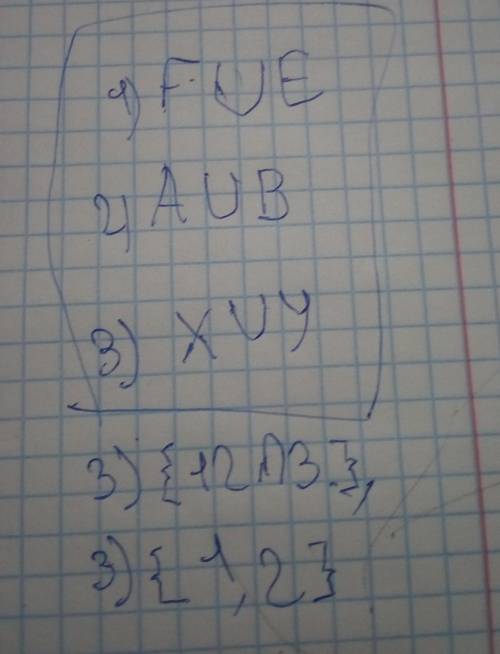 1) F U E
2) A U B
3) X U Y
3) {12 ∩ 3},
3) {1,2}